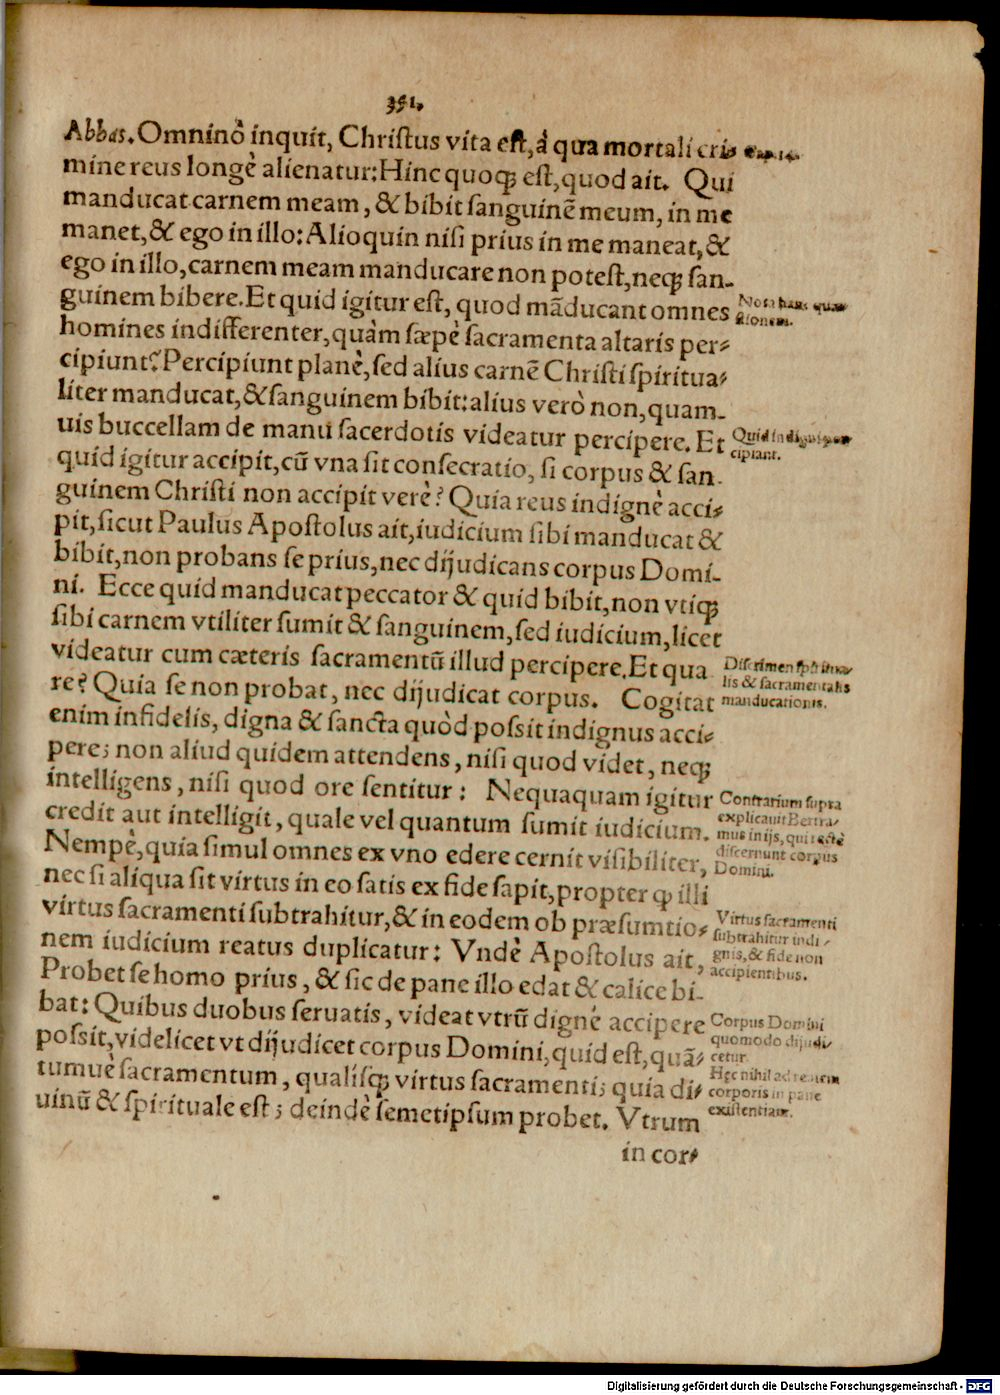 351.
Abbas. Omninò inquit, Christus vita est, à qua mortali cri-
mine reus longè alienatur: Hinc quoq; est, quod ait. Qui
manducat carnem meam, & bibit sanguinē meum, in me
manet, & ego in illo: Alioquin nisi prius in me maneat, &
ego in illo, carnem meam manducare non potest, neq; san-
guinem bibere. Et quid igitur est, quod māducant omnes
homines indifferenter, quàm sæpè sacramenta altaris per-
cipiunt? Percipiunt planè, sed alius carnē Christi spiritua-
liter manducat, & sanguinem bibit: alius verò non, quam-
uis buccellam de manu sacerdotis videatur percipere. Et
quid igitur accipit, cū vna sit consecratio, si corpus & san-
guinem Christi non accipit verè? Quia reus indignè acci-
pit, sicut Paulus Apostolus ait, iudicium sibi manducat &
bibit, non probans se prius, nec dijudicans corpus Domi-
ni. Ecce quid manducat peccator & quid bibit, non vtiq;
sibi carnem vtiliter sumit & sanguinem, sed iudicium, licet
videatur cum cæteris sacramentū illud percipere. Et qua
re? Quia se non probat, nec dijudicat corpus. Cogitat
enim infidelis, digna & sancta quòd possit indignus acci-
pere; non aliud quidem attendens, nisi quod videt, neq;
intelligens, nisi quod ore sentitur: Nequaquam igitur
credit aut intelligit, quale vel quantum sumit iudicium.
Nempè, quia simul omnes ex vno edere cernit visibiliter,
nec si aliqua sit virtus in eo satis ex fide sapit, propter qđ illi
virtus sacramenti subtrahitur, & in eodem ob præsumtio-
nem iudicium reatus duplicatur: Vndè Apostolus ait,
Probet se homo prius, & sic de pane illo edat & calice bi-
bat: Quibus duobus seruatis, videat vtrū dignè accipere
possit, videlicet vt dijudicet corpus Domini, quid est, quā-
tumuè sacramentum, qualisq; virtus sacramenti; quia di-
uinū & spirituale est; deindè semetipsum probet. Vtrum
in cor-
Nota hanc quae-
stionem.
Quid indigni per-
cipiant.
Discrimen spiritua-
lis & sacramentalis
manducationis.
Contrarium supra
explicauit Bertra-
mus in ijs, qui rectè
discernunt corpus
Domini.
Virtus sacramenti
subtrahitur indi-
gnis, & fide non
accipientibus.
Corpus Domini
quomodo dijudi-
cetur.
Hęc nihil ad realem
corporis in pane
existentiam.
Digitalisierung gefördert durch die Deutsche Forschungsgemeinschaft - DFG